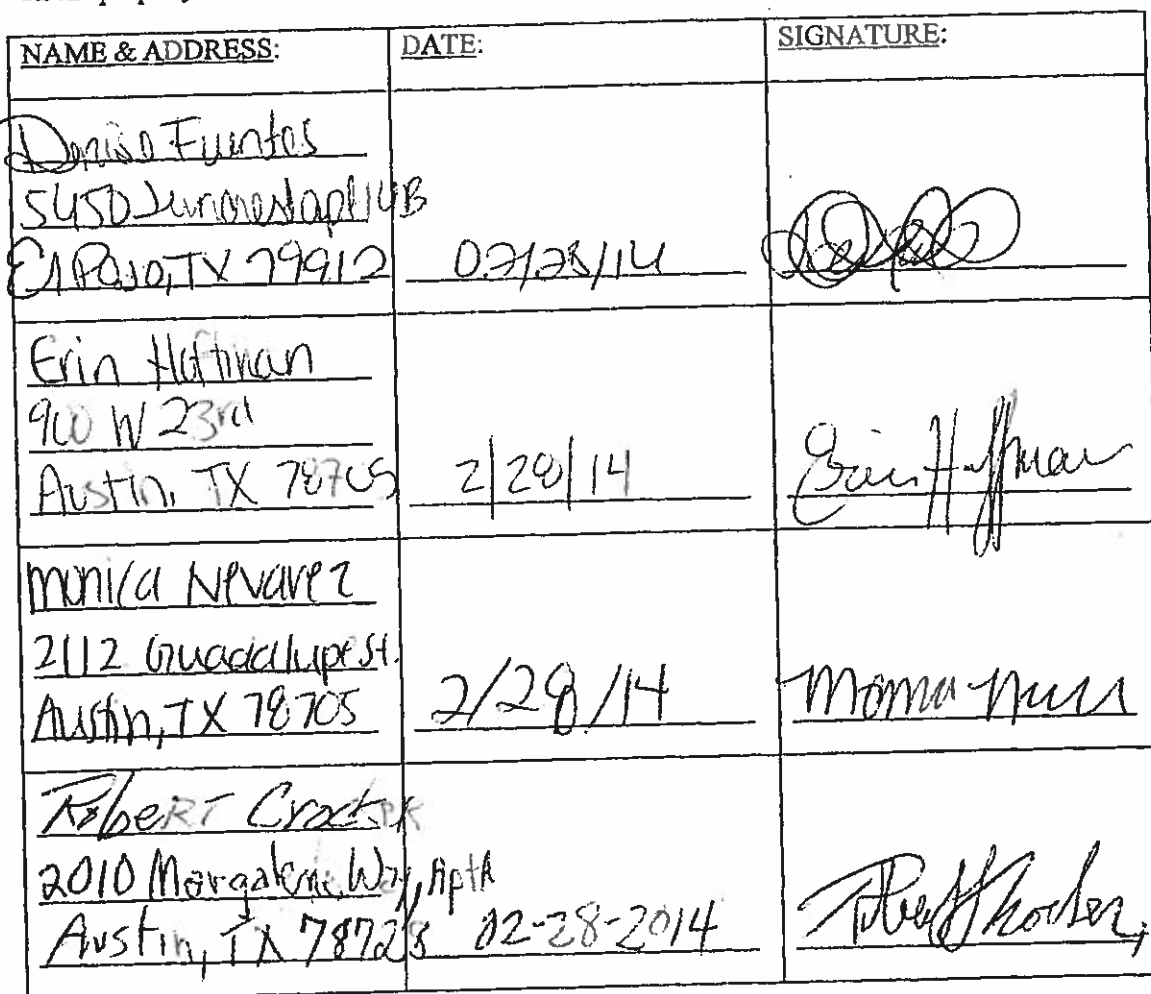 NAME & ADDRESS:
DATE:
SIGNATURE:
Denise Fuentes
5450 apt 14B
El Paso, TX 79912
02/28/14
Erin Hoffman
900 W 23rd
Austin, TX 78705
2/28/14
Erin Hoffman
Monica Nevarez
2112 Guadalupe St.
Austin, TX 78705
2/28/14
Robert Crocker
2010 Way, Apt A
Austin, TX 78723
02-28-2014